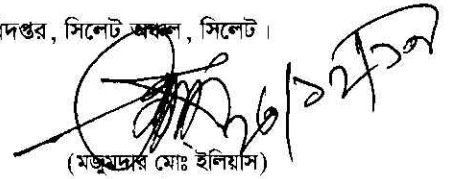 দপ্তর, সিলেট অঞ্চল, সিলেট।
(মজুমদার মোঃ ইলিয়াস)